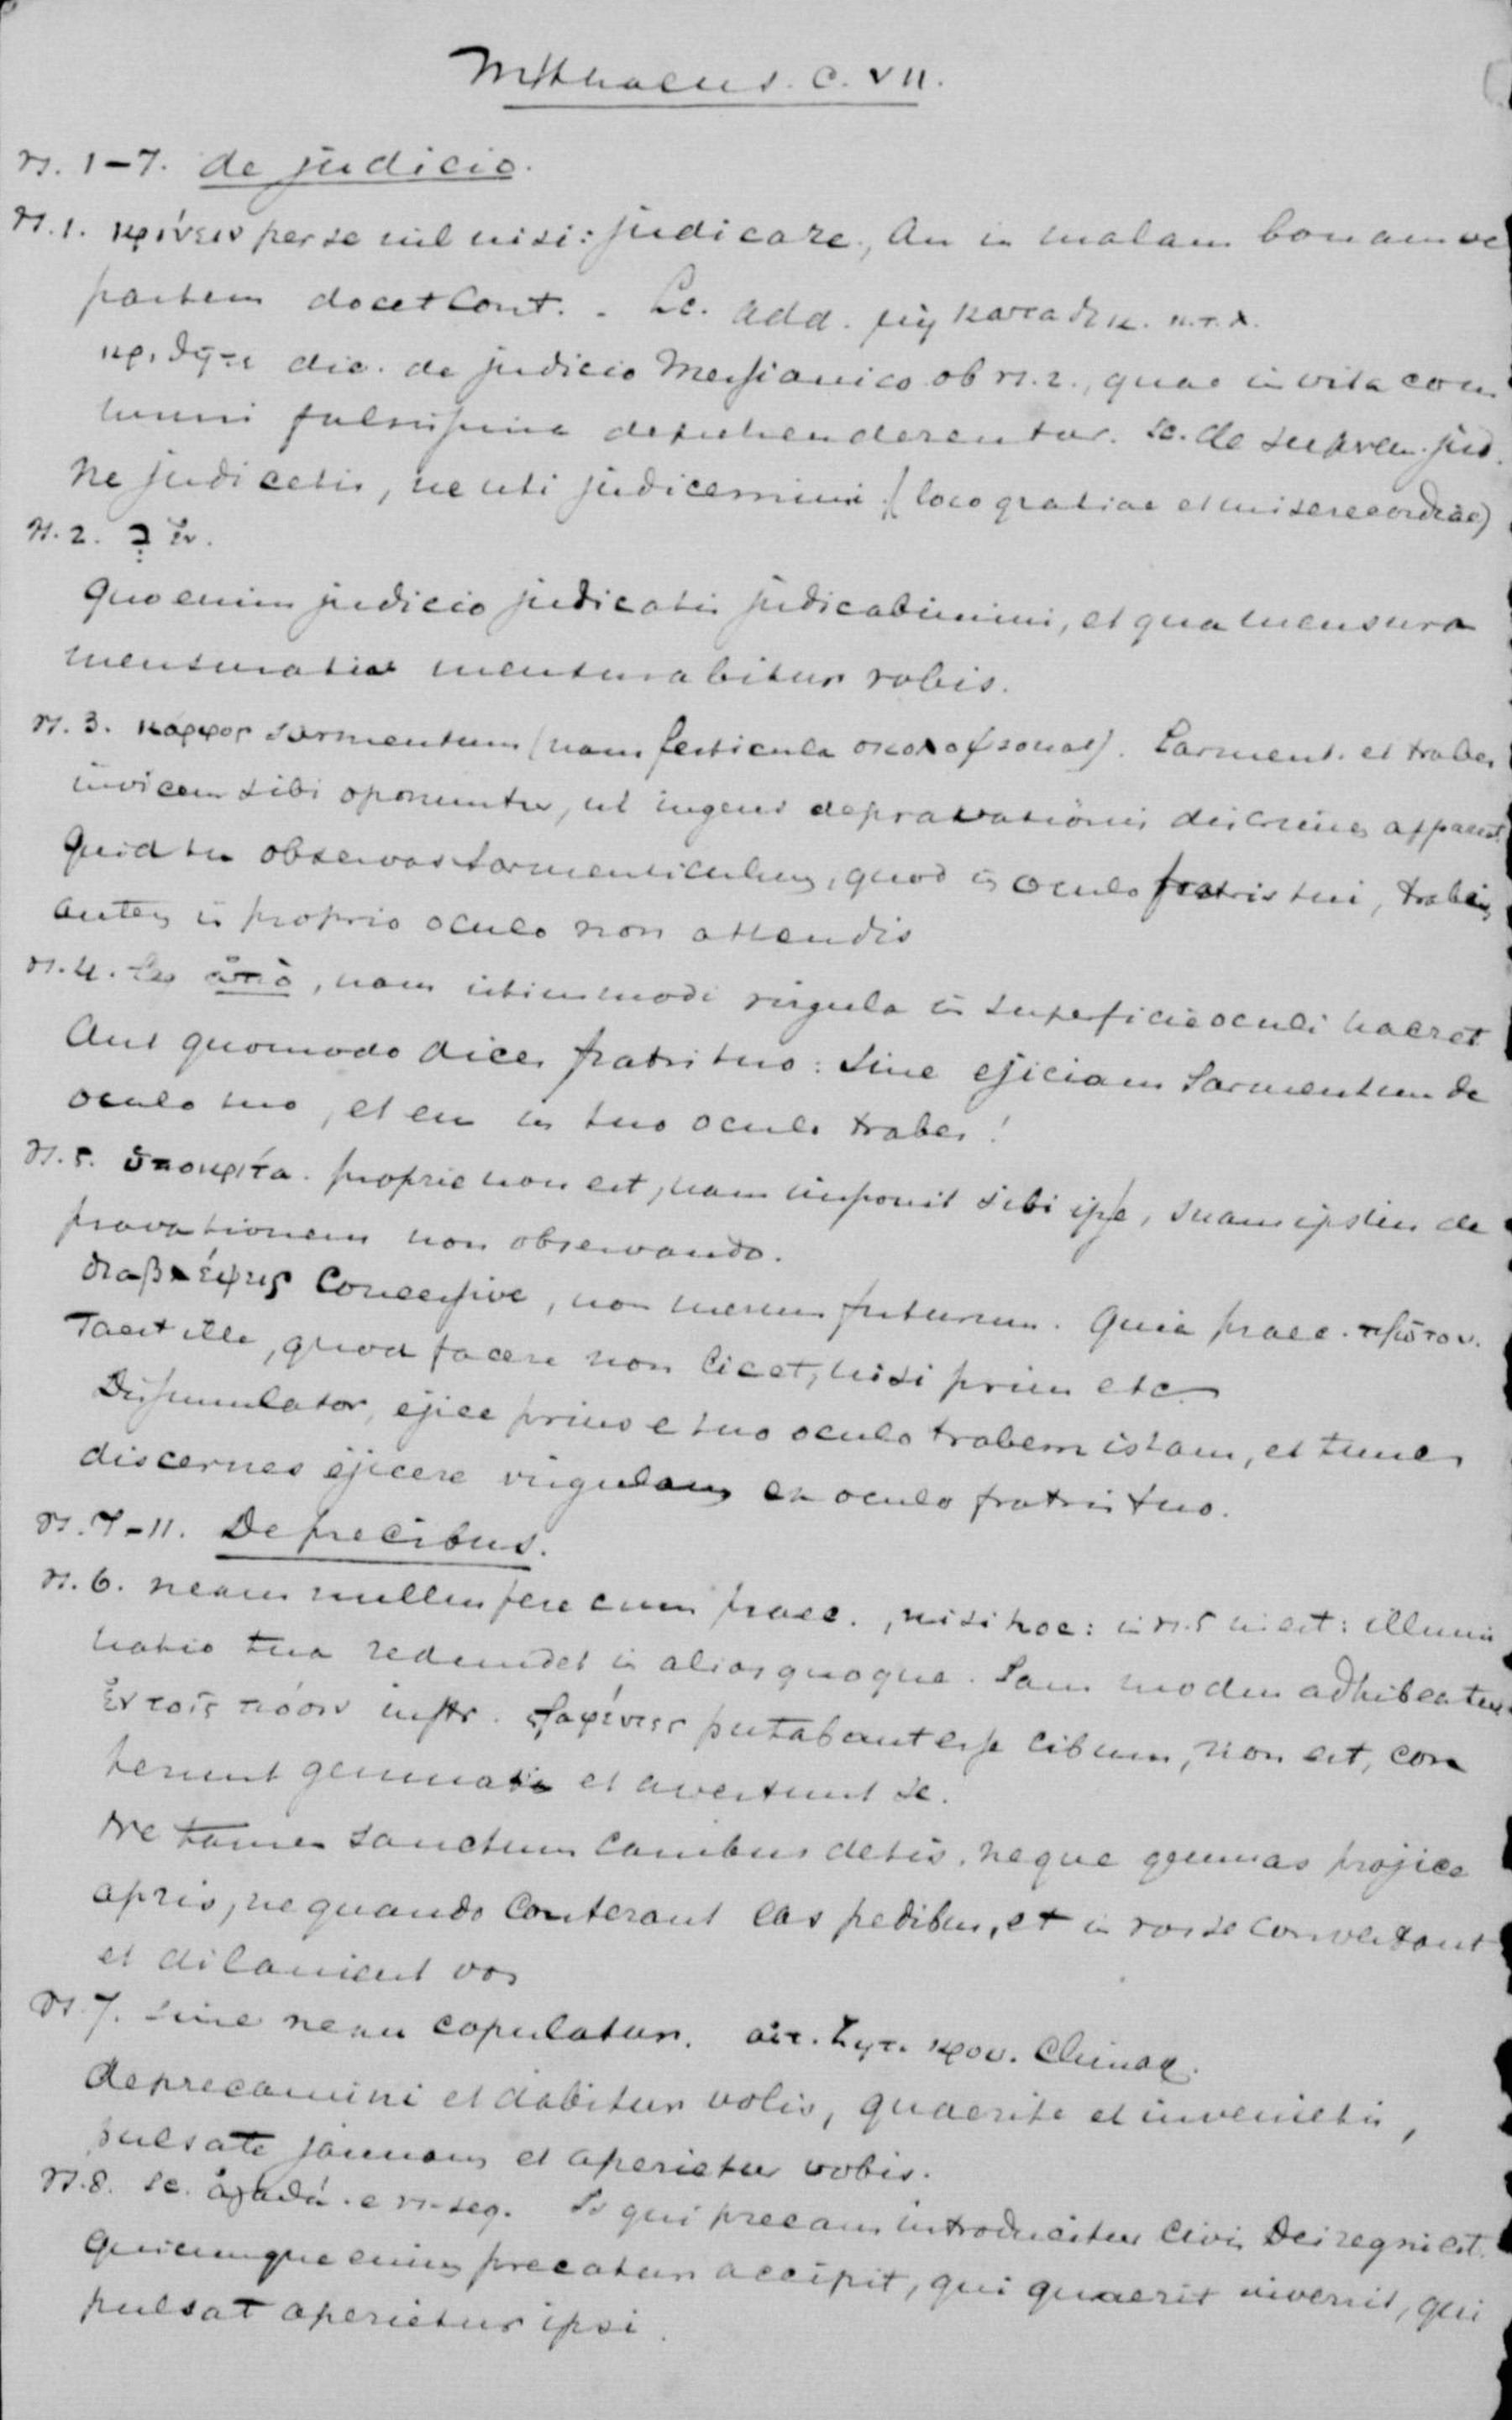 Matthaeus. C. VII.
vs. 1-7. de judicio.
vs. 1. κρίνειν per se nil nisi: judicare, an in malam bonamve
partem docet cont. . Lc. add. μὴ καταδικ. κ.τ.λ.
κριθῆτε dic. de judicio Messianico ob vs. 2., quae in vita com
muni falsissima deprehenderentur. sc. de suprem. jud.
ne judicetis, ne uti judicemini (loco gratiae et misericordiae)
vs. 2. ב ἐν.
Quo enim judicio judicatis judicabimini, et qua mensura
mensuratis mensurabitur vobis.
vs. 3. κάρφος sarmentum (nam festicula . Sarment. et trabes
invicem sibi oponuntur, ut ingens depravationis discrimen appareat.
Quid tu observas sarmenticulum, quod in oculo fratris tui, trabem
autem in proprio oculo non attendis
vs. 4. ἀπὸ, nam istiusmodi virgula in superficie oculi haeret
Aut quomodo dices fratri tuo: sine ejiciam sarmentum de
oculo tuo, et en in tuo oculo trabes!
vs. 5. ὑποκριτα. proprie non est, nam imponit sibi ipse, suam ipsius de
pravationem non observando.
διαβλέψεις Concessive, non merum futurum. Quia praec. πρῶτον.
Tacet ille, quod facere non licet, nisi prius etc
Dissimulator, ejice prius e tuo oculo trabem istam, et tunc
discernes ejicere virgulam ex oculo fratris tuo.
vs. 7-11. De precibus.
vs. 6. nexus nullus fere cum praec., nisi hoc: in vs. 5 inest: illumi
natio tua redundet in alios quoque. Jam modus adhibeatur.
ἐν τοῖς πόσιν instr. στραφέντες putabant esse cibum, non est, con
terunt gemmas et avertunt se.
Ne tamen sanctum canibus detis, neque gemmas projice
apris, ne quando conterant eas pedibus, et in vos se convertant
et dilanient vos
vs. 7. sine nexu copulatur. αἰτ. ζητ. κρου. Climax.
deprecamini et dabitur vobis, quaerite et invenietis,
pulsate januam et aperietur vobis.
vs. 8. sc. ἀγαθά. e vs. seq. Is qui precans introducitur civis Dei regni est.
Quicunque enim precatur accipit, qui quaerit invenit, qui
pulsat aperietur ipsi.